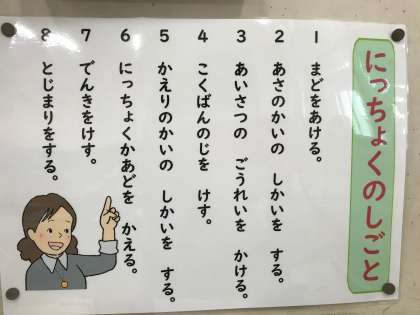 にっちょくのしごと
1 まどをあける。
2 あさのかいの しかいを する。
3 あいさつの ごうれいを かける。
4 こくばんのじを けす。
5 かえりのかいの しかいを する。
6 にっちょくかあどを かえる。
7 でんきをけす。
8 とじまりをする。